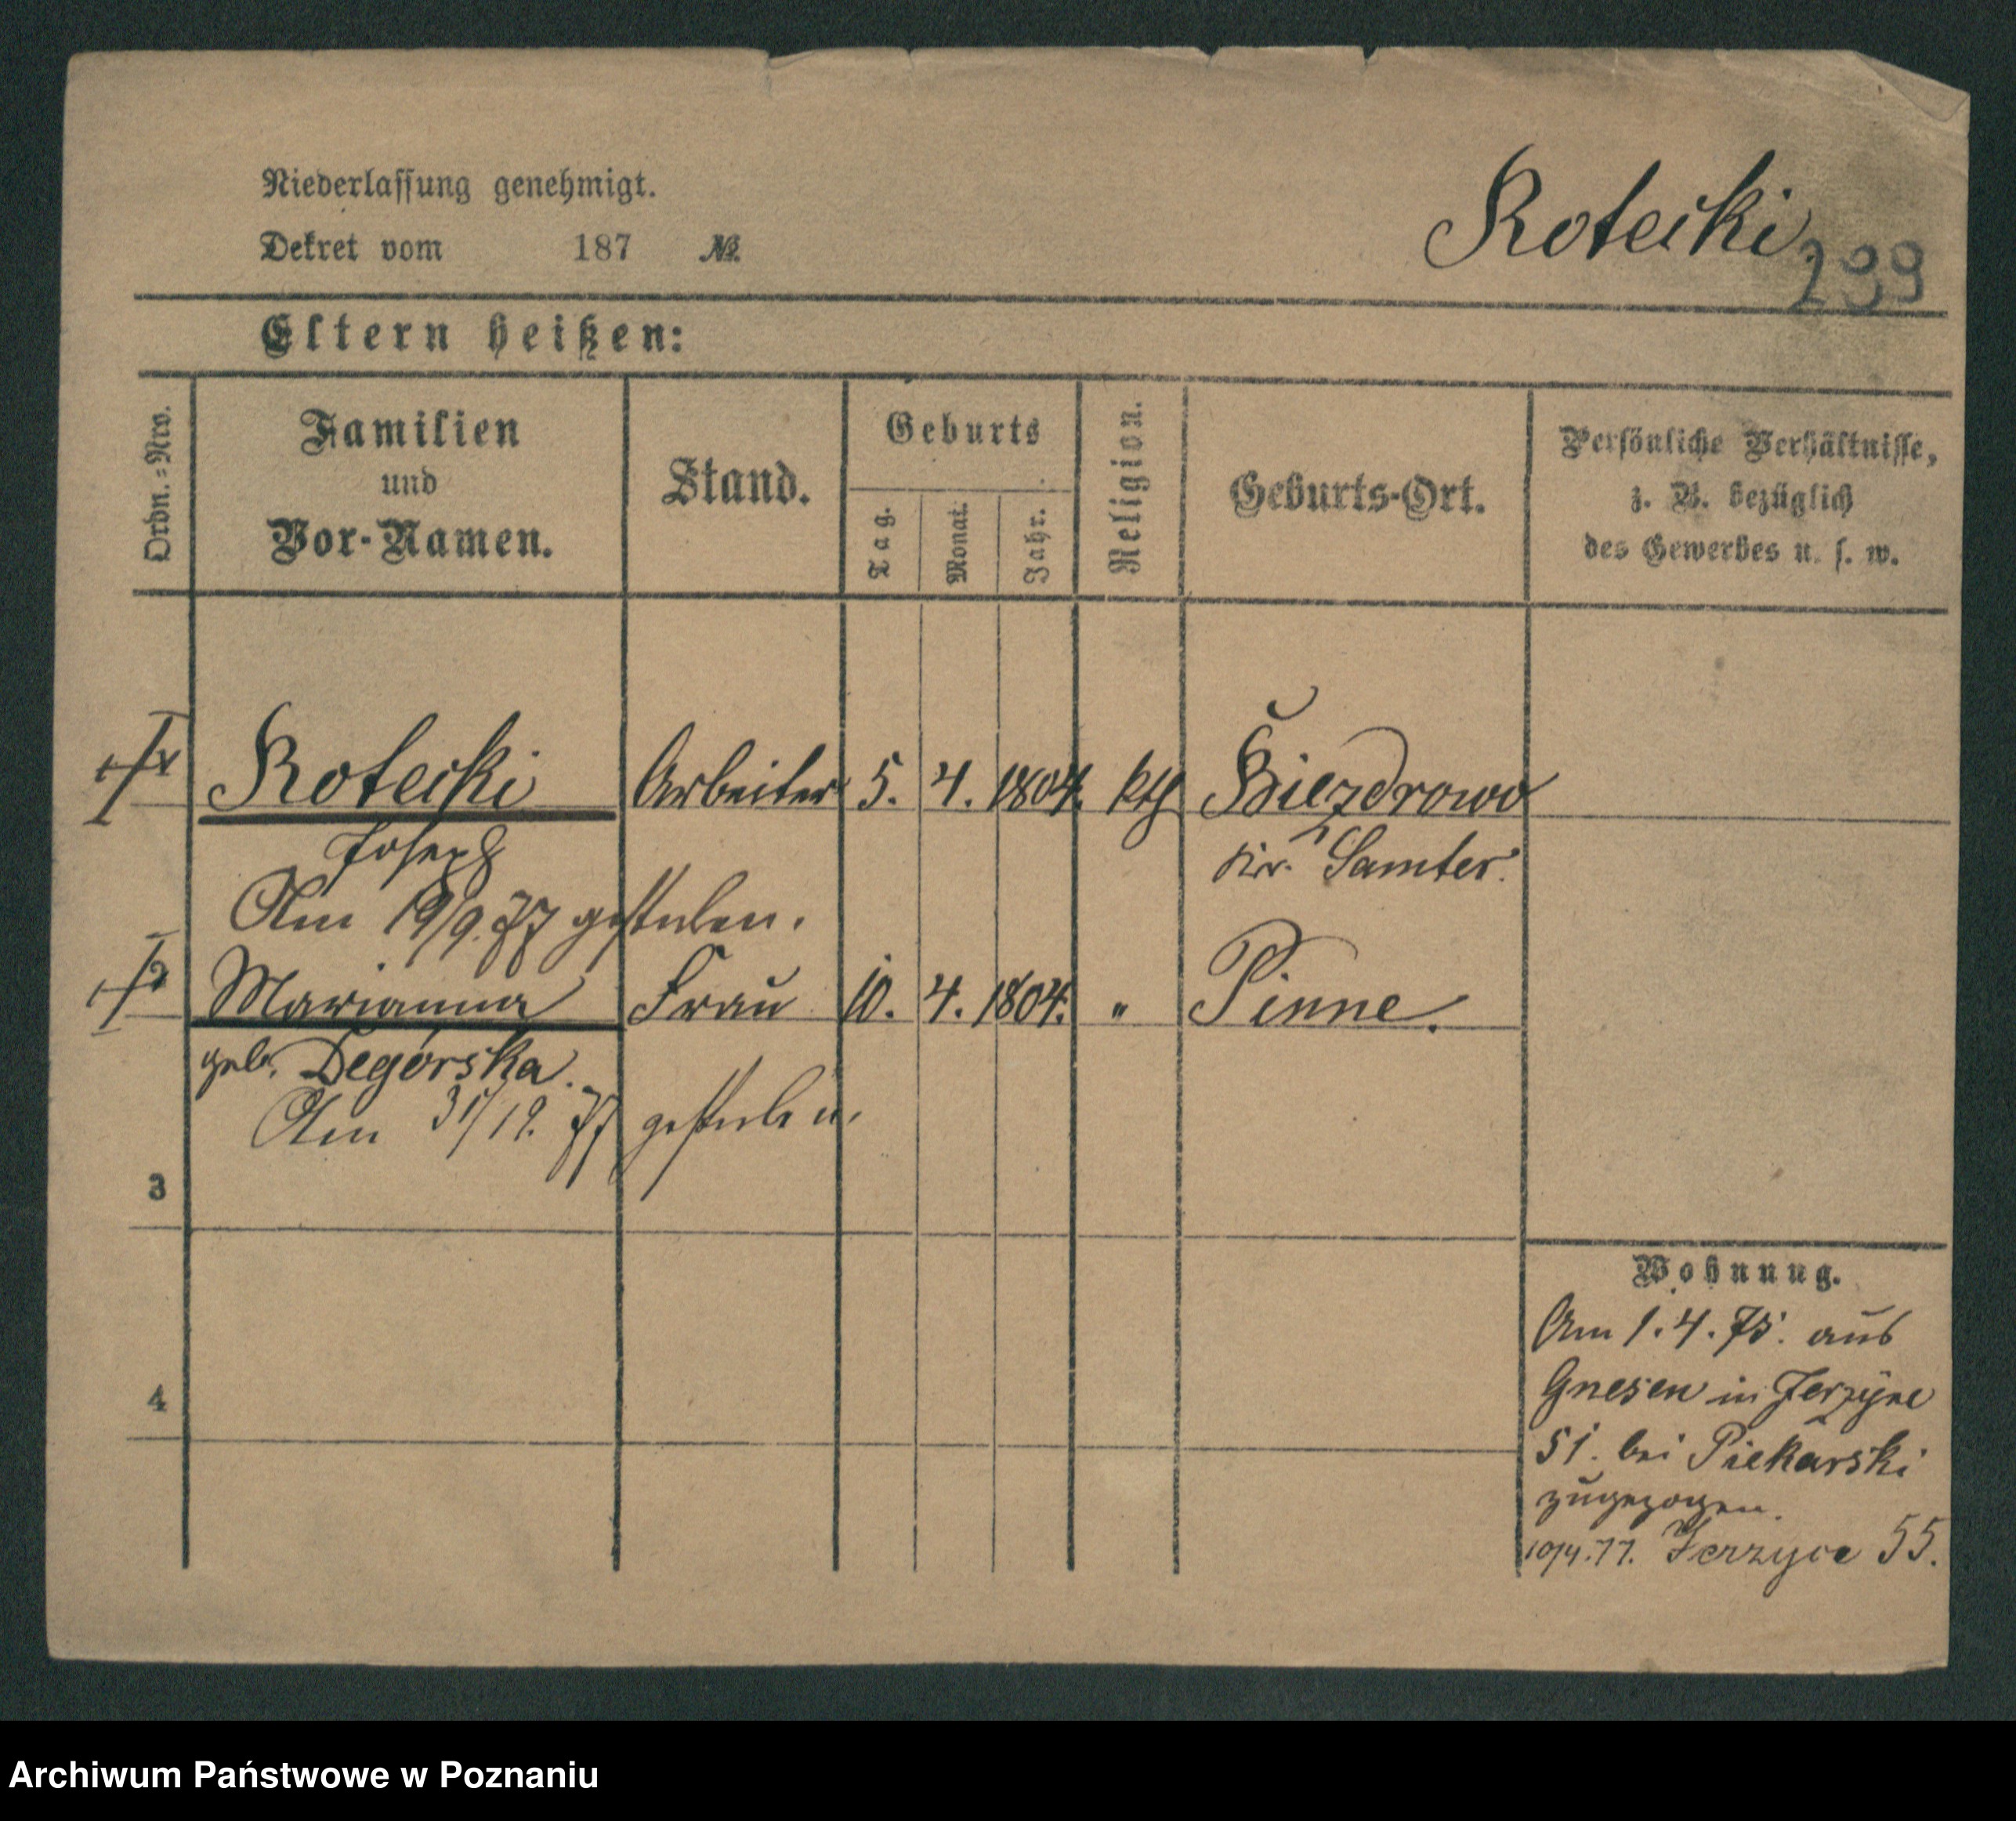 Niederlassung genehmigt.
Dekret vom 187 №
Rotecki.
299
Eltern heißen:
Ordn.=Nro.
Familien
und
Vor-Namen.
Stand.
Geburts
Tag.
Monat.
Jahr.
Religion.
Geburts-Ort.
Persönliche Verhältnisse,
z. B. bezüglich
des Gewerbes u. s. w.
1 Rotecki Arbeiter 5. 4. 1804. kth Biezdrowo
Joseph Kr. Samter.
Am 19/9. 77 gestorben.
2 Marianna Frau 10. 4. 1804. " Pinne.
geb. Degórska.
Am 31/12. 77 gestorben.
3
4
Wohnung.
Am 1. 4. 75. aus
Gnesen in Jerzyce
51. bei Piekarski
zugezogen.
10/4. 77. Jerzyce 55.
Archiwum Państwowe w Poznaniu